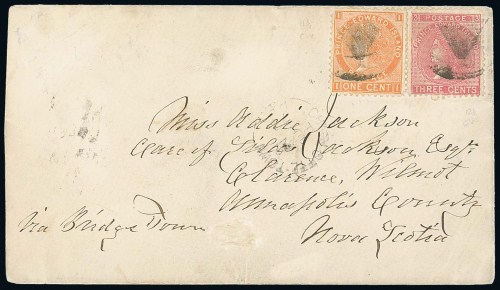 1 1
PRINCE EDWARD ISLAND
1 ONE CENT 1
3 3
PRINCE EDWARD ISLAND
THREE CENTS
Miss Addie Jackson
Care of Jackson Esqr
Clarence, Wilmot
Annapolis County
Nova Scotia
via Bridge Town